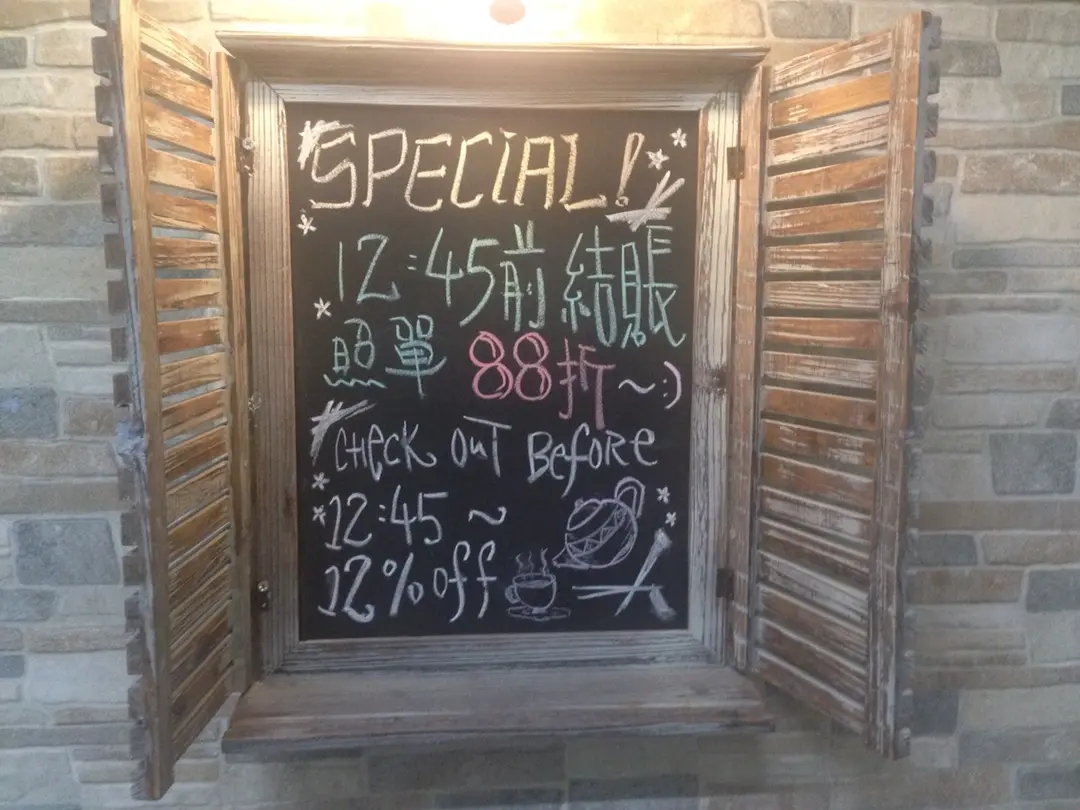 SPECiAL!
12:45前 結賬
照單 88折~:)
CHeCK OuT BefoRe
12:45 ~
12%off